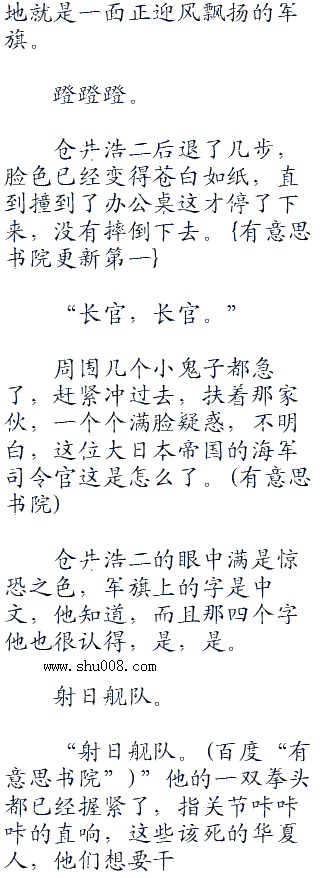 地就是一面正迎风飘扬的军
旗。
蹬蹬蹬。
仓井浩二后退了几步，
脸色已经变得苍白如纸，直
到撞到了办公桌这才停了下
来，没有摔倒下去。{有意思
书院更新第一}
“长官，长官。”
周围几个小鬼子都急
了，赶紧冲过去，扶着那家
伙，一个个满脸疑惑，不明
白，这位大日本帝国的海军
司令官这是怎么了。(有意思
书院)
仓井浩二的眼中满是惊
恐之色，军旗上的字是中
文，他知道，而且那四个字
他也很认得，是，是。
www.shu008.com
射日舰队。
“射日舰队。(百度“有
意思书院”)”他的一双拳头
都已经握紧了，指关节咔咔
咔的直响，这些该死的华夏
人，他们想要干